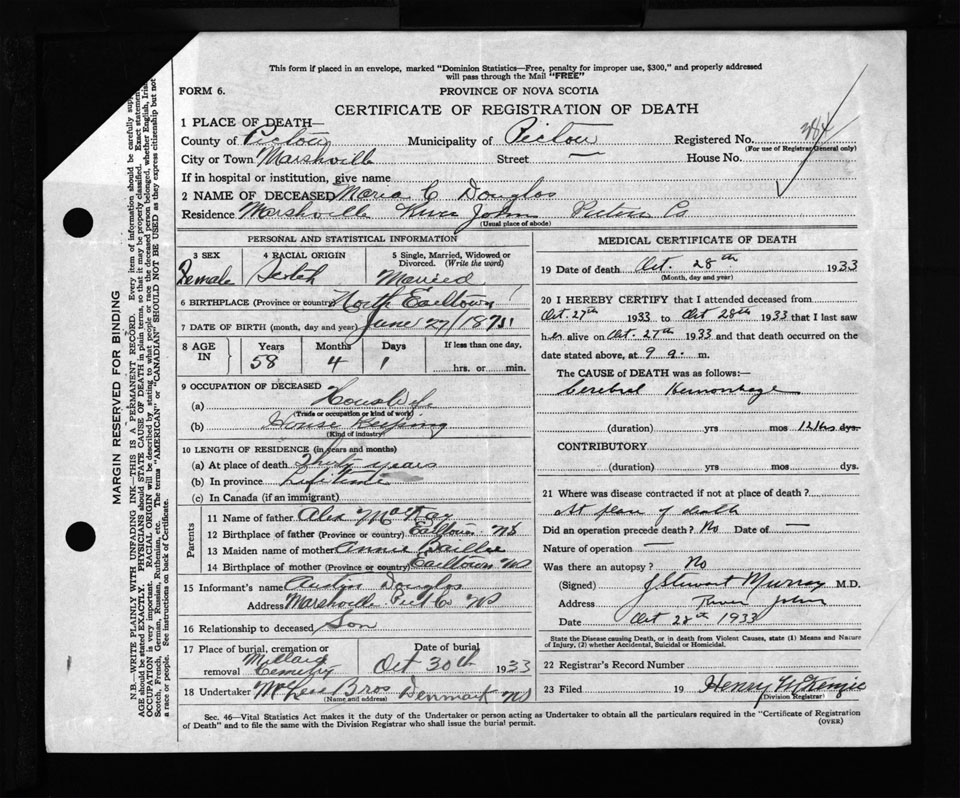 This form if placed in an envelope, marked "Dominion Statistics—Free, penalty for improper use, $300," and properly addressed
will pass through the Mail "FREE"
FORM 6.
PROVINCE OF NOVA SCOTIA
CERTIFICATE OF REGISTRATION OF DEATH
1 PLACE OF DEATH—
County of Pictou Municipality of Pictou Registered No.
(For use of Registrar General only)
City or Town Marshville Street — House No.
If in hospital or institution, give name
2 NAME OF DECEASED Maria C Douglas
Residence Marshville River John Pictou Co
(Usual place of abode)
PERSONAL AND STATISTICAL INFORMATION
3 SEX 4 RACIAL ORIGIN 5 Single, Married, Widowed or
Divorced. (Write the word)
Female Scotch Married
6 BIRTHPLACE (Province or country) North Earltown
7 DATE OF BIRTH (month, day and year) June 27/1875
8 AGE IN Years Months Days If less than one day,
58 4 1 hrs. or min.
9 OCCUPATION OF DECEASED
(a) HousWife
(Trade or occupation or kind of work)
(b) House Keeping
(Kind of industry)
10 LENGTH OF RESIDENCE (in years and months)
(a) At place of death years
(b) In province Life time
(c) In Canada (if an immigrant)
Parents
11 Name of father Alex McKay
12 Birthplace of father (Province or country) Earltown NS
13 Maiden name of mother Annie Baillie
14 Birthplace of mother (Province or country) Earltown NS
15 Informant's name Austin Douglas
Address Marshville Pict Co NS
16 Relationship to deceased Son
17 Place of burial, cremation or removal Date of burial
Millard Cemetry Oct 30th 1933
18 Undertaker Bros Denmark NS
(Name and address)
MEDICAL CERTIFICATE OF DEATH
19 Date of death Oct. 28th 1933
(Month, day and year)
20 I HEREBY CERTIFY that I attended deceased from
Oct. 27th 1933 to Oct 28th 1933 that I last saw
her alive on Oct. 27th 1933 and that death occurred on the
date stated above, at 9 a. m.
The CAUSE of DEATH was as follows:—
Cerebral Hemorrhage
(duration) yrs mos 12 hrs dys.
CONTRIBUTORY
(duration) yrs. mos. dys.
21 Where was disease contracted if not at place of death?
At place of death
Did an operation precede death? No Date of —
Nature of operation —
Was there an autopsy? No
(Signed) J Stewart Murray M.D.
Address River John
Date Oct 28th 1933
State the Disease causing Death, or in death from Violent Causes, state (1) Means and Nature
of Injury, (2) whether Accidental, Suicidal or Homicidal.
22 Registrar's Record Number
23 Filed 19 Henry McKenzie
(Division Registrar)
Sec. 46—Vital Statistics Act makes it the duty of the Undertaker or person acting as Undertaker to obtain all the particulars required in the "Certificate of Registration
of Death" and to file the same with the Division Registrar who shall issue the burial permit.
(OVER)
MARGIN RESERVED FOR BINDING
N.B.—WRITE PLAINLY WITH UNFADING INK—THIS IS A PERMANENT RECORD. Every item of information should be carefully
AGE should be stated EXACTLY. PHYSICIANS should STATE CAUSE OF DEATH in plain terms, so that it may be properly classified. Exact
OCCUPATION is very important. RACIAL ORIGIN will be described by stating to what people or race the deceased person belonged, whether English,
Scotch, French, German, Russian, Ruthenian, etc. The terms "AMERICAN" or "CANADIAN" SHOULD NOT BE USED as they express citizenship but not
a race or people. See instructions on back of Certificate.